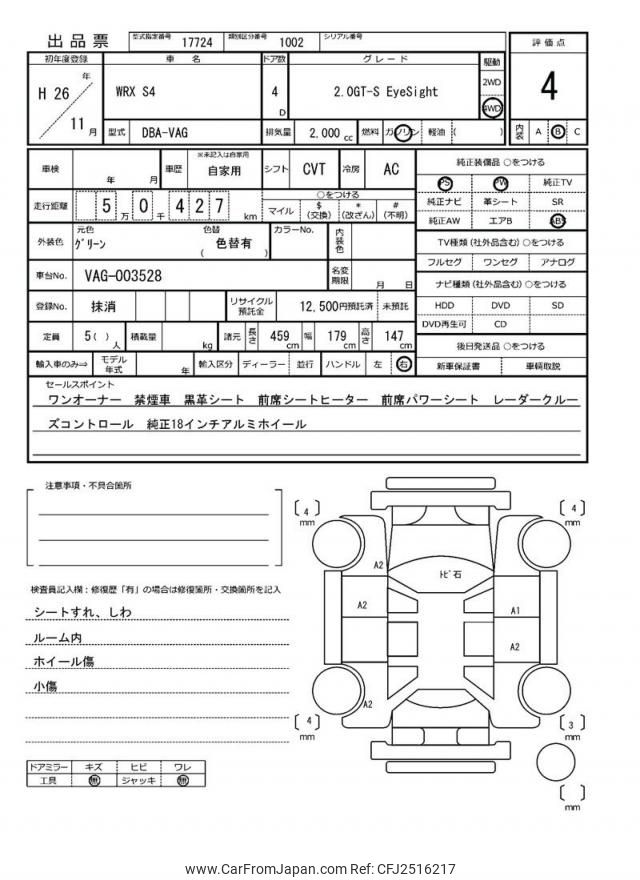 出品票 型式指定番号 17724 類別区分番号 1002 シリアル番号
評価点
4
内装 A B C
初年度登録 車名 ドア数 グレード 駆動
H 26 年 11 月
WRX S4 4 D 2.0GT-S EyeSight 2WD 4WD
型式 DBA-VAG 排気量 2,000 cc 燃料 ガソリン 軽油 ( )
車検 年 月 車歴 ※未記入は自家用 自家用 シフト CVT 冷房 AC
純正装備品 ○をつける
PS PW 純正TV
純正ナビ 革シート SR
純正AW エアB ABS
走行距離 5 万 0 千 4 2 7 km
○をつける
マイル $(交換) *(改ざん) #(不明)
外装色 元色 グリーン 色替 ( 色替有 ) カラーNo. 内装色
TV種類 (社外品含む) ○をつける
フルセグ ワンセグ アナログ
車台No. VAG-003528 名変期限 月 日
ナビ種類 (社外品含む) ○をつける
HDD DVD SD
DVD再生可 CD
登録No. 抹消 リサイクル預託金 12,500円預託済 未預託
定員 5 ( ) 人 積載量 kg 諸元 長さ 459 cm 幅 179 cm 高さ 147 cm
後日発送品 ○をつける
新車保証書 車輌取説
輸入車のみ⇒ モデル年式 年 輸入区分 ディーラー 並行 ハンドル 左 右
セールスポイント
ワンオーナー 禁煙車 黒革シート 前席シートヒーター 前席パワーシート レーダークルー
ズコントロール 純正18インチアルミホイール
注意事項・不具合箇所
検査員記入欄:修復歴「有」の場合は修復箇所・交換箇所を記入
シートすれ、しわ
ルーム内
ホイール傷
小傷
ドアミラー キズ ヒビ ワレ
工具 無 ジャッキ 無
4 mm
4 mm
A2
トビ石
A2
A1
A2
A2
4 mm
3 mm
mm
www.CarFromJapan.com Ref: CFJ2516217